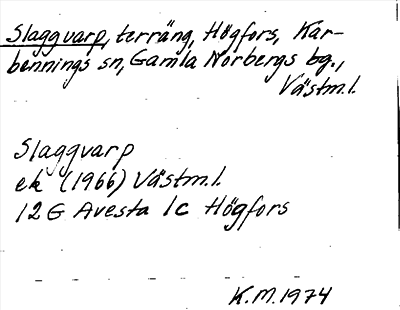 Slaggvarp, terräng, Högfors, Kar-
bennings sn, Gamla Norbergs bg.,
Västm.l.
Slaggvarp
ek (1966) Västm.l.
12 G Avesta 1c Högfors
K.M. 1974